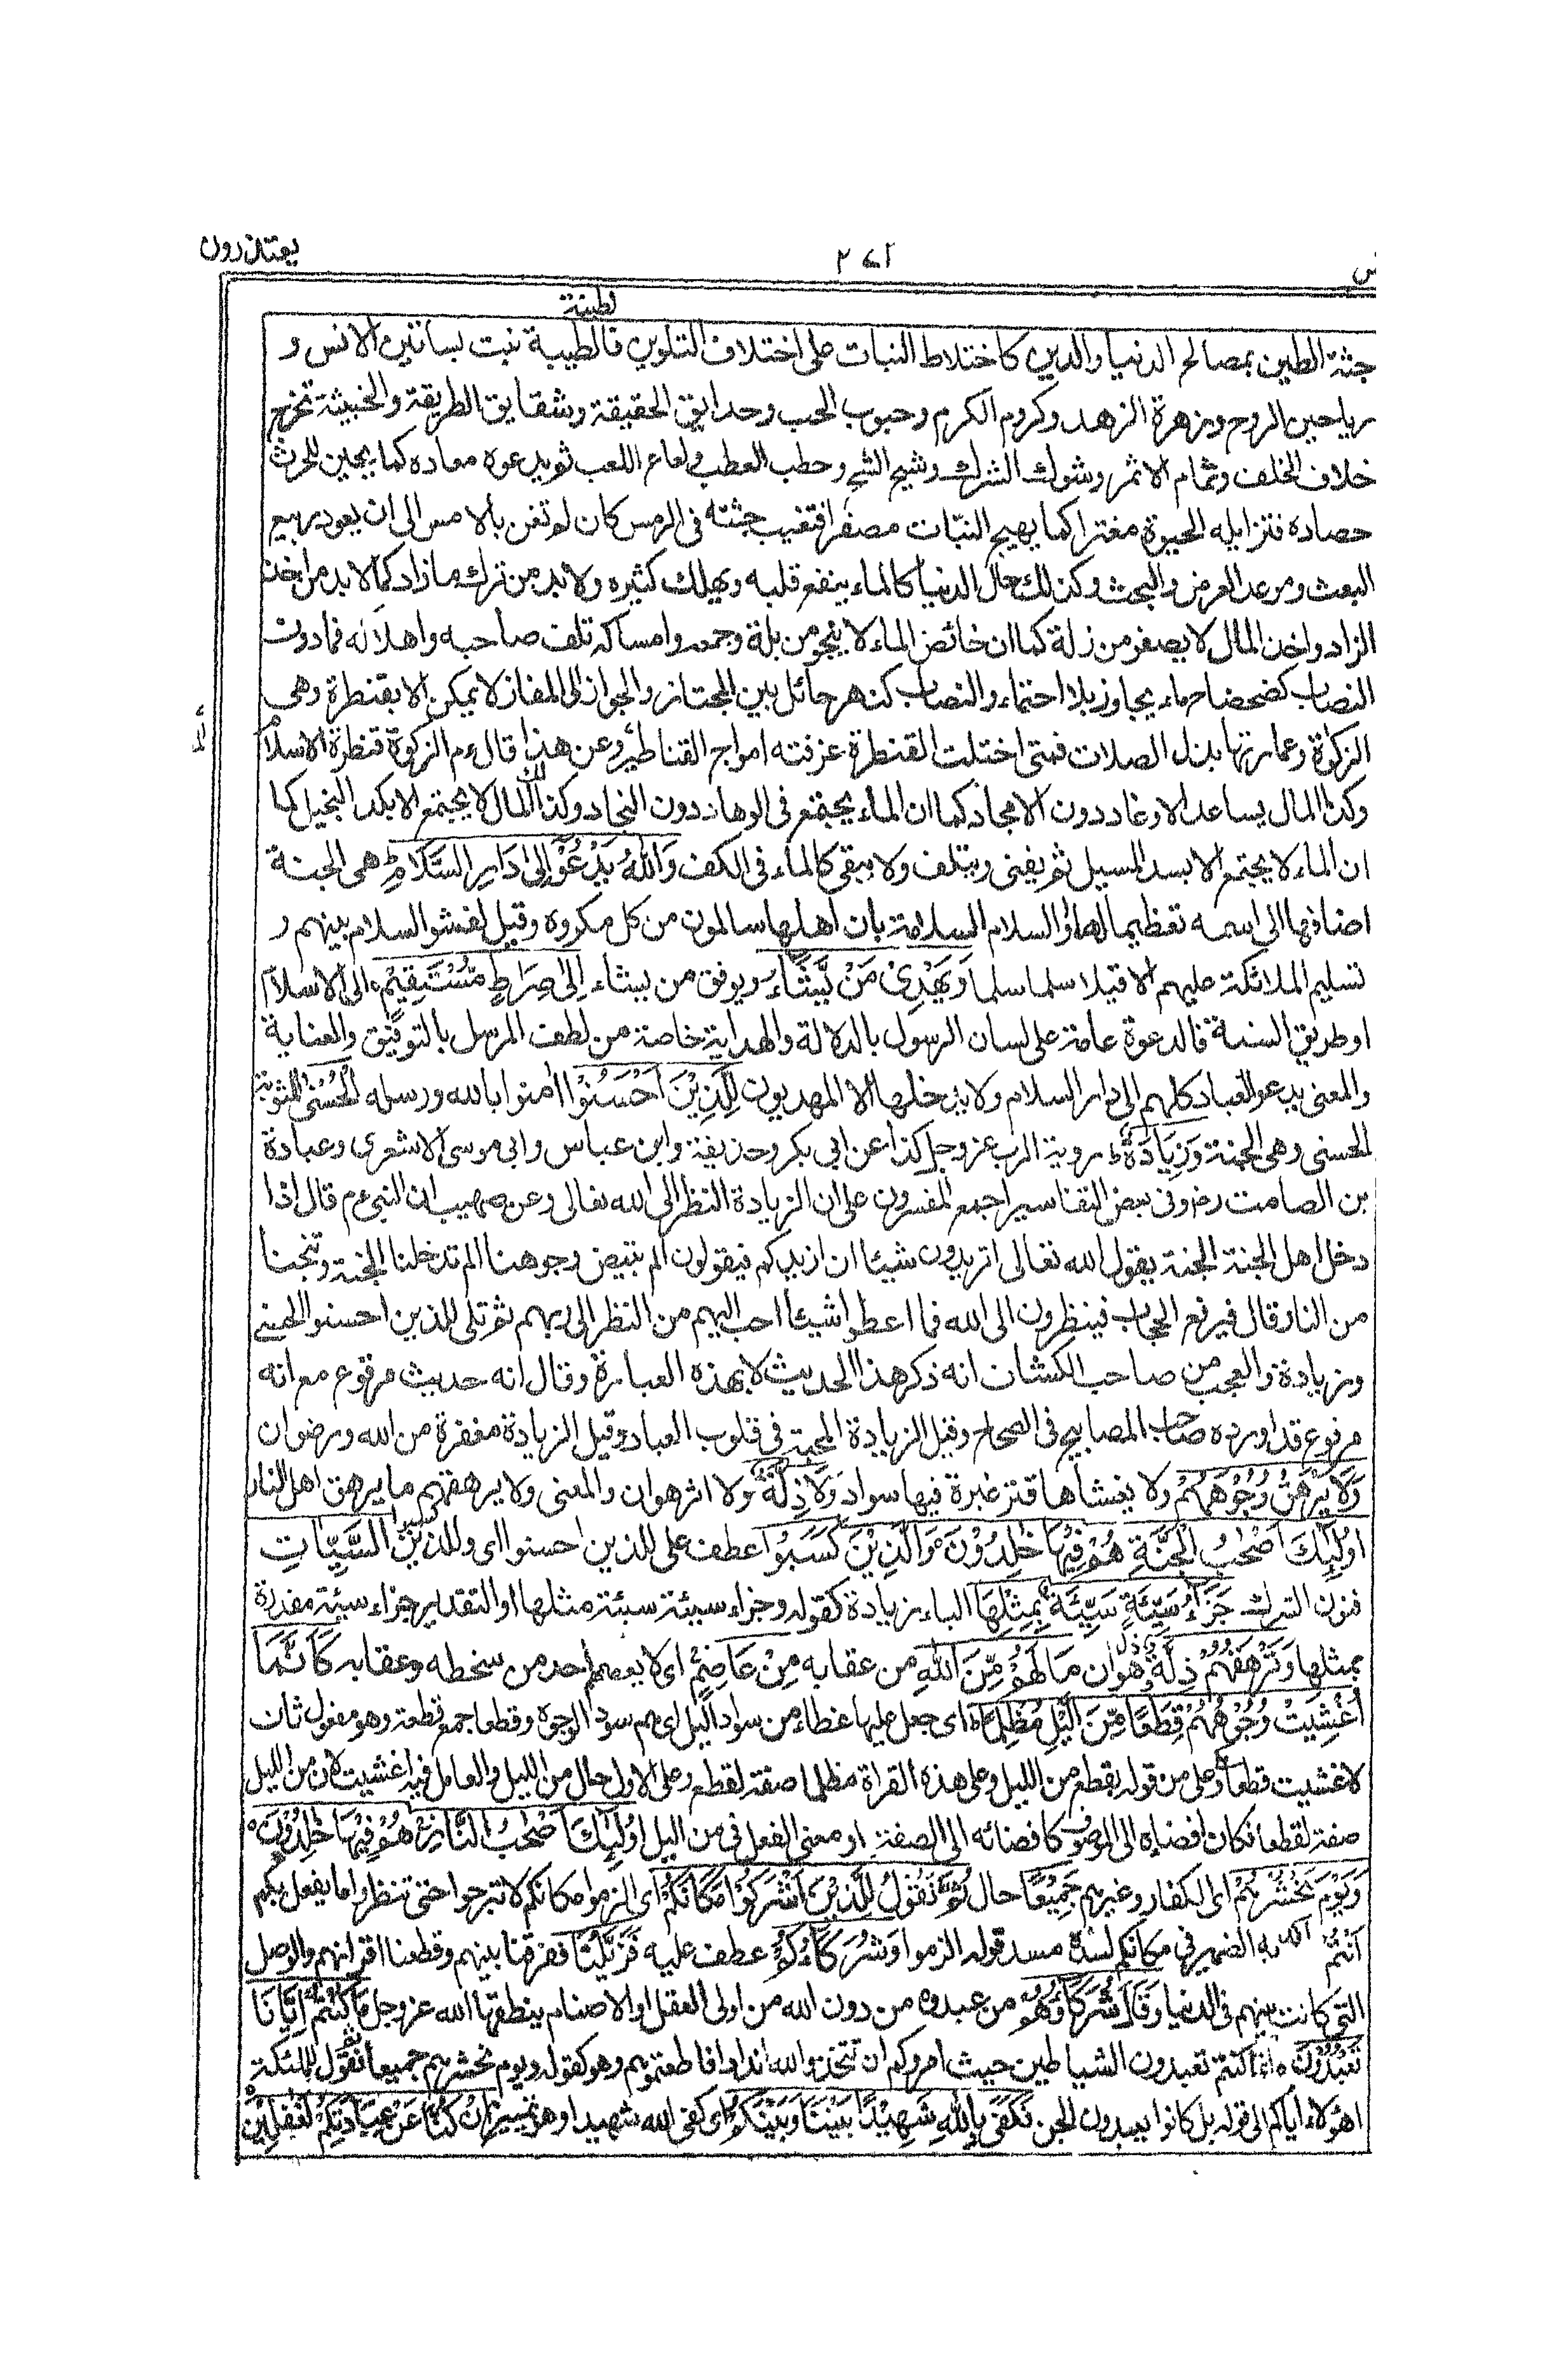 يعتذرون
٢٧٢
لطيفة
جثة الطين بمصالح الدنيا والدين كاختلاط النبات على اختلاف التلوين فالطيبة نبت بساتين الانس و
رياحين الروح وزهرة الزهد وكروم الكرم وحبوب الحب وحدايق الحقيقة وشقايق الطريقة والخبيثة تخرج
خلاف الخلف وثمام الاثم وشوك الشرك وشيح الشح وحطب العطب ولعاع اللعب ثم يدعوه معاده كما يحين للحرث
حصاده فتزايله الحيوة مغترا كما يهيج النبات مصفرا فتغيب جثته فى الرمس كان لم تغن بالامس الى ان يعود ربيع
البعث وموعد العرض والبحث وكذلك حال الدنيا كالماء ينفع قليله ويهلك كثيره ولا بد من ترك ما زاد كما لا بد من اخذ
الزاد واخذ المال لا يصفو من زلة كما ان خائض الماء لا ينجو من بلة وجمعه وامساكه تلف صاحبه واهلاكه فما دون
النصاب كضحضاح ماء يجاوز بلا احتماء والنصاب كنهر حائل بين المجتاز والجواز الى المفاز لا يمكن الا بقنطرة وهى
الزكوة وعمارتها بذل الصلات فمتى اختلت القنطرة غرفته امواج القناطير وعن هذا قال ءم الزكوة قنطرة الاسلام
وكذا المال يساعد الاوغاد دون الامجاد كما ان الماء يجتمع فى الوهاد دون النجاد وكذلك المال لا يجتمع الا بكد البخيل كما
ان الماء لا يجتمع الا بسد المسيل ثم يفنى ويتلف ولا يبقى كالماء فى الكف وَاللّٰهُ يَدْعُوْٓا اِلٰى دَارِ السَّلَامِ ط هى الجنة
اضافها الى اسمه تعظيما لها او السلام السلامة بان اهلها سالمون من كل مكروه وقيل لفشو السلام بينهم و
تسليم الملائكة عليهم الا قيلا سلما سلما وَيَهْدِىْ مَنْ يَّشَآءُ ويوفق من يشاء اِلٰى صِرَاطٍ مُّسْتَقِيْمٍ الى الاسلام
او طريق السنة فالدعوة عامة على لسان الرسول بالدلالة والهداية خاصة من لطف المرسل بالتوفيق والعناية
والمعنى يدعو العباد كلهم الى دار السلام ولا يدخلها الا المهديون لِلَّذِيْنَ اَحْسَنُوْا امنوا بالله ورسله الْحُسْنٰى المثوبة
الحسنى وهى الجنة وَزِيَادَةٌ ط روية الرب عز وجل كذا عن ابى بكر وحذيفة وابن عباس وابى موسى الاشعرى وعبادة
بن الصامت رض وفى بعض التفاسير اجمع المفسرون على ان الزيادة النظر الى الله تعالى وعن صهيب ان النبى ءم قال اذا
دخل اهل الجنة الجنة يقول الله تعالى اتريدون شيئا ان ازيدكم فيقولون الم تبيض وجوهنا الم تدخلنا الجنة وتنجنا
من النار قال فيرفع الحجاب فينظرون الى الله فما اعطوا شيئا احب اليهم من النظر الى ربهم ثم تلى للذين احسنوا الحسنى
وزيادة والعجب من صاحب الكشاف انه ذكر هذا الحديث لا بهذه العبارة وقال انه حديث مرقوع مع انه
مرفوع قد اورده صاحب المصابيح فى الصحاح وقيل الزيادة المحبة فى قلوب العباد وقيل الزيادة مغفرة من الله ورضوان
وَلَا يَرْهَقُ وُجُوْهَهُمْ ولا يغشاها قتر غبرة فيها سواد وَلَا ذِلَّةٌ ولا اثر هوان والمعنى ولا يرهقهم ما يرهق اهل النار
اُولٰٓئِكَ اَصْحٰبُ الْجَنَّةِ هُمْ فِيْهَا خٰلِدُوْنَ وَالَّذِيْنَ كَسَبُوا عطف على للذين احسنوا اى وللذين كسبوا السَّيِّاٰتِ
فنون الشرك جَزَآءُ سَيِّئَةٍۢ بِمِثْلِهَا الباء زيادة كقوله وجزاء سيئة سيئة مثلها او التقدير جزاء سيئة مقدرة
بمثلها وَتَرْهَقُهُمْ ذِلَّةٌ ذل وهوان مَا لَهُمْ مِّنَ اللّٰهِ من عقابه مِنْ عَاصِمٍ اى لا يعصمهم احد من سخطه وعقابه كَاَنَّمَا
اُغْشِيَتْ وُجُوْهُهُمْ قِطَعًا مِّنَ الَّيْلِ مُظْلِمًا ط اى جعل عليها غطاء من سواد الليل اى هم سود الوجوه وقطعا جمع قطعة وهو مفعول ثان
لاغشيت قطعا وعلى من قوله بقطع من الليل وعلى هذه القراة مظلما صفة لقطع وعلى الاولى حال من الليل والعامل فيه اغشيت لان من الليل
صفة لقطعا فكان افضاه الى الموصوف كافضائه الى الصفة او معنى الفعل فى من اليل اُولٰٓئِكَ اَصْحٰبُ النَّارِ هُمْ فِيْهَا خٰلِدُوْنَ
وَيَوْمَ نَحْشُرُهُمْ اى الكفار وغيرهم جَمِيْعًا حال ثُمَّ نَقُوْلُ لِلَّذِيْنَ اَشْرَكُوْا مَكَانَكُمْ اى الزموا مكانكم لا تبرحوا حتى تنظروا ما يفعل بكم
اَنْتُمْ اكد به الضمير فى مكانكم لسده مسد قوله الزموا وَشُرَكَآؤُكُمْ عطف عليه فَزَيَّلْنَا ففرقنا بينهم وقطعنا اقرانهم والوصل
التى كانت بينهم فى الدنيا وَقَالَ شُرَكَآؤُهُمْ من عبدوه من دون الله من اولى العقل او الاصنام ينطقها الله عز وجل مَا كُنْتُمْ اِيَّانَا
تَعْبُدُوْنَ انما كنتم تعبدون الشياطين حيث امروكم ان تتخذوا لله اندادا فاطعتموهم وهو كقوله ويوم نحشرهم جميعا ثم نقول للملئكة
اهؤلاء اياكم الى قوله بل كانوا يعبدون الجن فَكَفٰى بِاللّٰهِ شَهِيْدًا بَيْنَنَا وَبَيْنَكُمْ اى كفى الله شهيدا وهو تمييز اِنْ كُنَّا عَنْ عِبَادَتِكُمْ لَغٰفِلِيْنَ